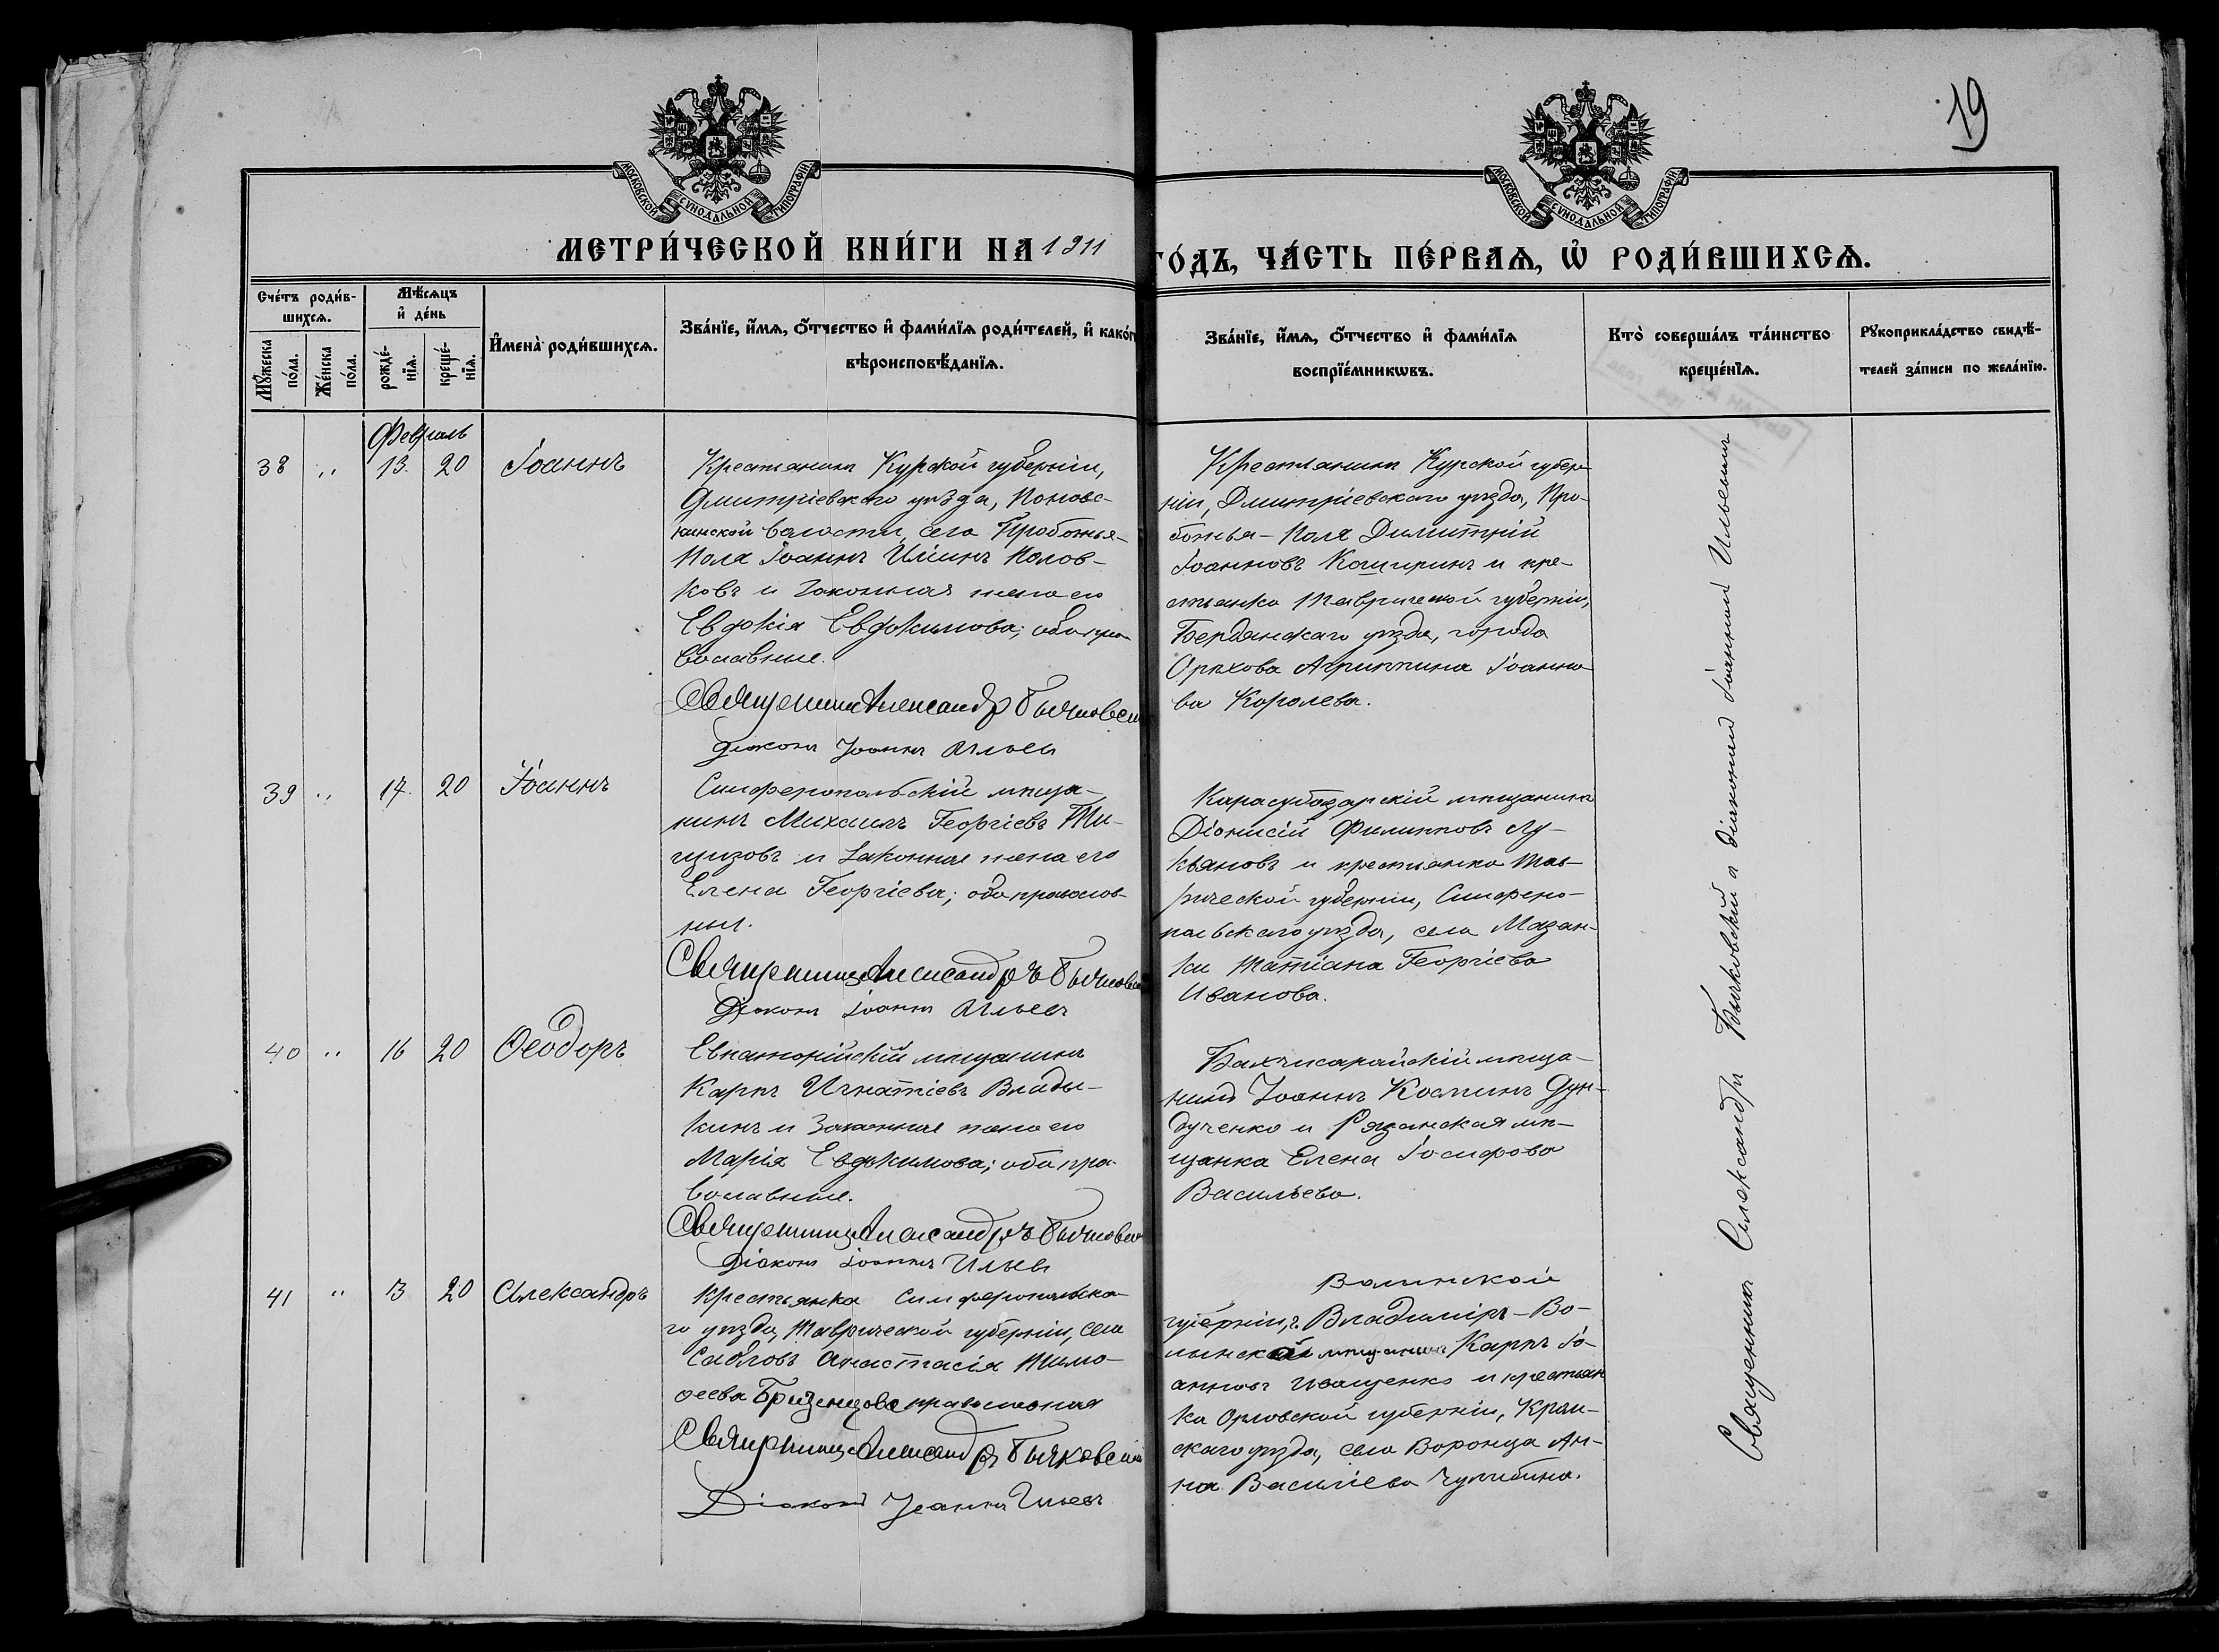 19
МОСКОВСКОЙ СѴНОДАЛЬНОЙ ТИПОГРАФІИ
МОСКОВСКОЙ СѴНОДАЛЬНОЙ ТИПОГРАФІИ
МЕТРИ́ЧЕСКОЙ КНИ́ГИ НА 1911
ГО́ДЪ, ЧА́СТЬ ПЕ́РВАѦ, Ѡ҆ РОДИ́ВШИХСѦ.
Сче́тъ роди́в-
шихсѧ.
Мꙋ́жеска
по́ла.
Же́нска
по́ла.
Мѣ́сѧцъ
и҆ де́нь
рожде́-
нїѧ.
креще́-
нїѧ.
И҆мена̀ роди́вшихсѧ.
Зва́нїе, и҆́мѧ, ѻ҆́тчество и҆ фами́лїѧ роди́телей, и҆ како́г
вѣроисповѣ́данїѧ.
Зва́нїе, и҆́мѧ, ѻ҆́тчество и҆ фами́лїѧ
воспрїе́мникѡвъ.
Кто̀ соверша́лъ та́инство
креще́нїѧ.
Рꙋкоприкла́дство свидѣ́-
телей за́писи по жела́нїю.
Февраль
38 " 13. 20 Іоаннъ
Крестьянинъ Курской губерніи,
Дмитріевскаго уѣзда,
волости, села Пробожья-
Поля Іоаннъ Иліинъ Полов-
ковъ и законная жена его
Евдокія Евдокимова; оба пра-
вославные.
Священникъ Александръ Бычковскі
Діаконъ Іоаннъ Ильевъ
Крестьянинъ Курской губер-
ніи, Дмитріевскаго уѣзда, Про-
божья-Поля Димитрій
Іоанновъ Каширинъ и кре-
стьянка Таврической губерніи,
Бердянскаго уѣзда, города
Орѣхова Агриппина Іоанно-
ва Королева.
39 " 14. 20 Іоаннъ
Симферопольскій мѣща-
нинъ Михаилъ Георгіевъ Ти-
щизовъ и законная жена его
Елена Георгіева; оба православ-
ные.
Священникъ Александръ Бычковскі
Діаконъ Іоаннъ Ильевъ
Карасубазарскій мѣщанинъ
Діонисій Филипповъ Лу-
кьяновъ и крестьянка Тав-
рической губерніи, Симферо-
польскаго уѣзда, села Мазан-
ки Татіана Георгіева
Иванова.
40 " 16 20 Ѳеодоръ
Евпаторійскій мѣщанинъ
Карпъ Игнатіевъ Влады-
кинъ и законная жена его
Марія Евдокимова; оба пра-
вославные.
Священникъ Александръ Бычковскі
Діаконъ Іоаннъ Ильевъ
Бахчисарайскій мѣща-
нинъ Іоаннъ Косминъ Дун-
дученко и Рязанская мѣ-
щанка Елена Іосифова
Васильева.
41 " 13 20 Александръ
Крестьянка Симферопольска-
го уѣзда, Таврической губерніи, села
Сабловъ Анастасія Тимо-
ѳеева православная
Священникъ Александръ Бычковскій
Діаконъ Іоаннъ Ильевъ
Волынской
губерніи, г. Владиміръ-Во-
лынской мѣщанинъ Карпъ Іо-
анновъ Иващенко и крестьян-
ка Орловской губерніи, Кром-
скаго уѣзда, села Воронца Ан-
на Василіева
Священникъ Александръ Бычковскій и діаконъ Іоаннъ Ильевъ